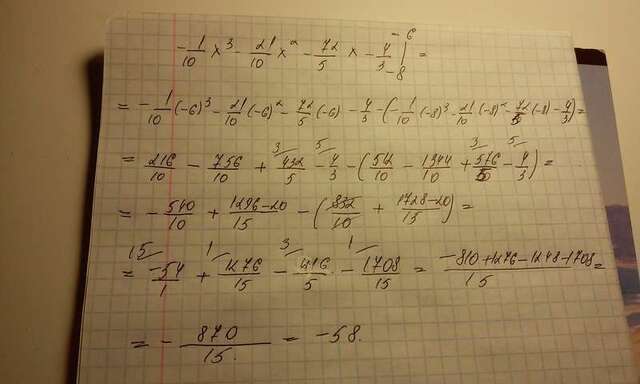 -1/10 x³ - 21/10 x² - 72/5 x - 4/3 |₋₈⁻⁶ =
= -1/10 (-6)³ - 21/10 (-6)² - 72/5 (-6) - 4/3 - (-1/10 (-8)³ - 21/10 (-8)² - 72/5 (-8) - 4/3) =
= 216/10 - 756/10 + ³⁄432/5 - ⁵⁄4/3 - (512/10 - 1344/10 + ³⁄576/5 - ⁵⁄4/3) =
= -540/10 + 1296-20/15 - (832/10 + 1728-20/15) =
= ¹⁵⁄-54/1 + ¹⁄1276/15 - ³⁄416/5 - ¹⁄1708/15 = -810+1276-1248-1708/15 =
= - 870/15 = -58.